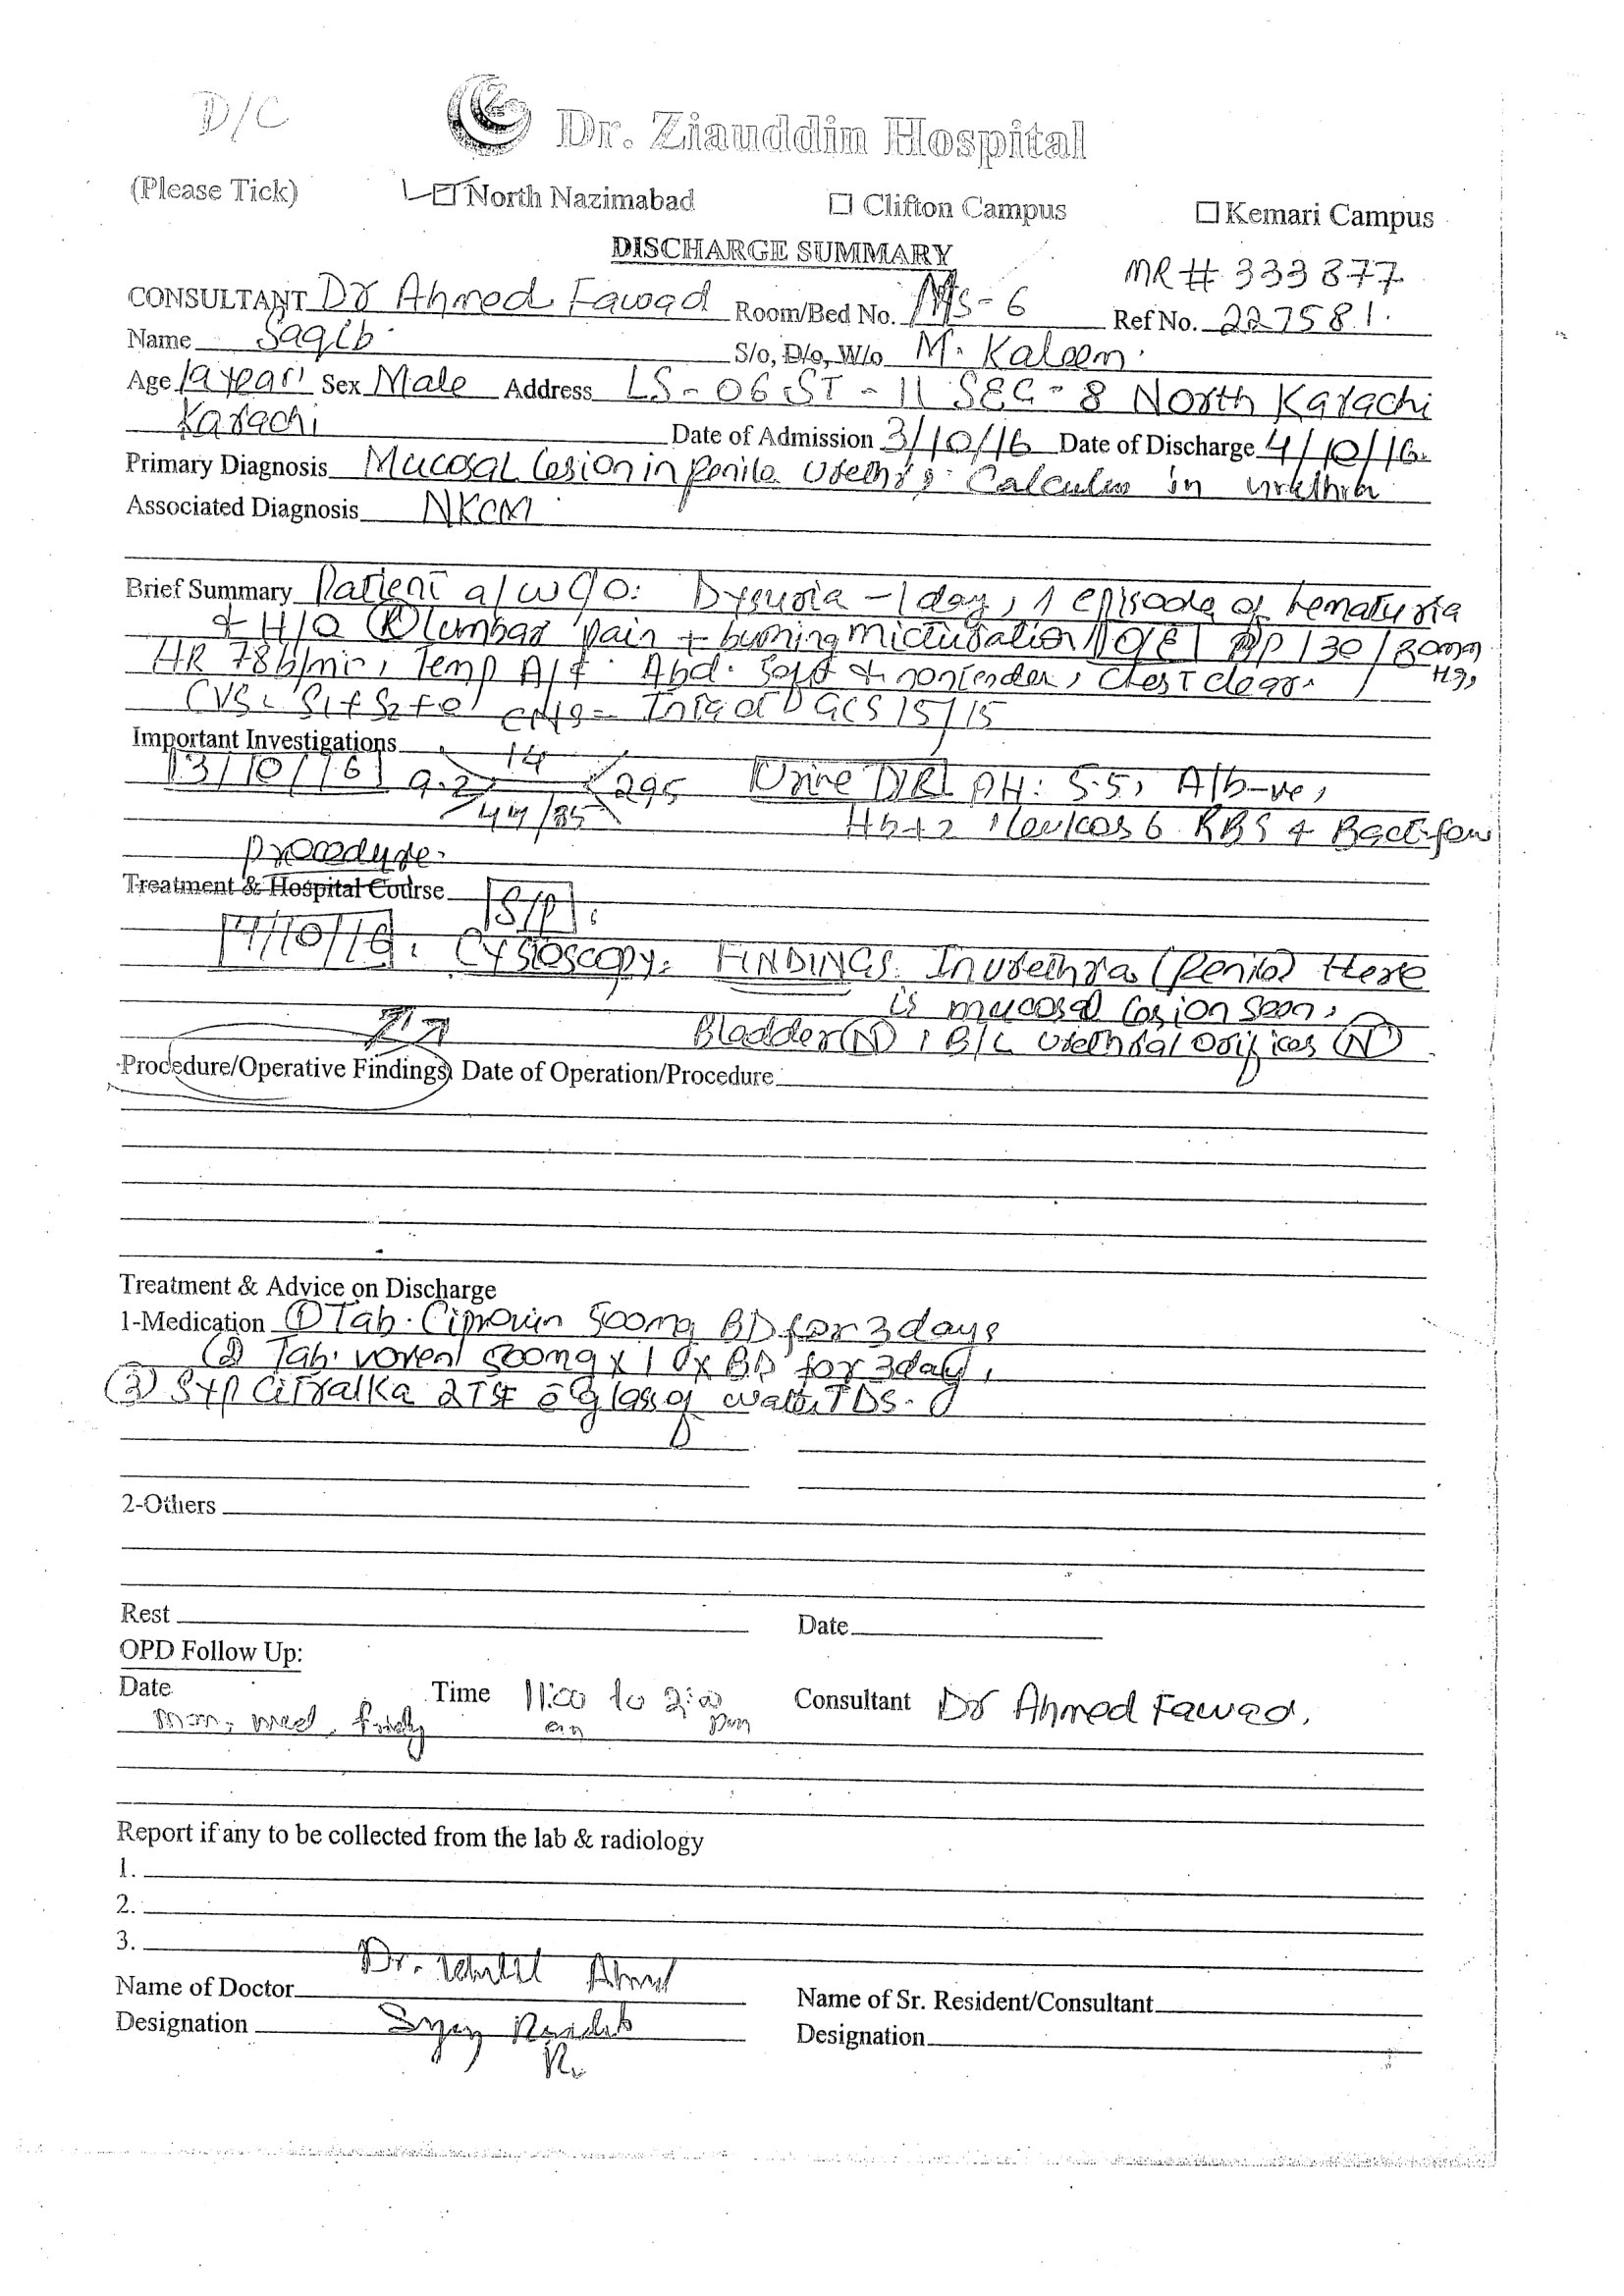 D/C
Dr. Ziauddin Hospital
(Please Tick) North Nazimabad Clifton Campus Kemari Campus
DISCHARGE SUMMARY
MR # 333877
CONSULTANT Dr Ahmed Fawad Room/Bed No. MS-6 Ref No. 227581.
Name Saqib S/o, D/o, W/o M. Kaleem
Age 19 year Sex Male Address LS-06 ST-11 SEC-8 North Karachi
Karachi Date of Admission 3/10/16 Date of Discharge 4/10/16
Primary Diagnosis Mucosal lesion in penile urethra Calculus in urethra
Associated Diagnosis NKCM
Brief Summary Patient a/w C/O: Dysuria - 1 day, 1 episode of hematuria
& H/O (R) lumbar pain + burning micturation O/E BP 130/80mm
HR 78b/min, Temp A/f. Abd. soft & nontender, chest clear. Hg,
CVS: S1+S2+0 CNS= Intact GCS 15/15
Important Investigations
3/10/16 9.2 14 295 Urine D/R PH: 5.5, Alb-ve,
44/35 Hb+2, leukos 6 RBS 4 Bact-few
procedure.
Treatment & Hospital Course S/P:
4/10/16. Cystoscopy: FINDINGS. In urethra (penile) there
is mucosal lesion seen,
Bladder (N), B/L urethral orifices (N)
Procedure/Operative Findings Date of Operation/Procedure
Treatment & Advice on Discharge
1-Medication (1) Tab. Ciproxin 500mg BD for 3 days
(2) Tab. voren 500mg x 1 BD for 3 days,
(3) Syp Citralka 2 TSF c̄ glass of water TDS.
2-Others
Rest Date
OPD Follow Up:
Date Time 11:00 to 2:00 Consultant Dr Ahmed Fawad.
mon, wed, friday am pm
Report if any to be collected from the lab & radiology
1.
2.
3.
Name of Doctor Dr. Ahmed Name of Sr. Resident/Consultant
Designation Designation